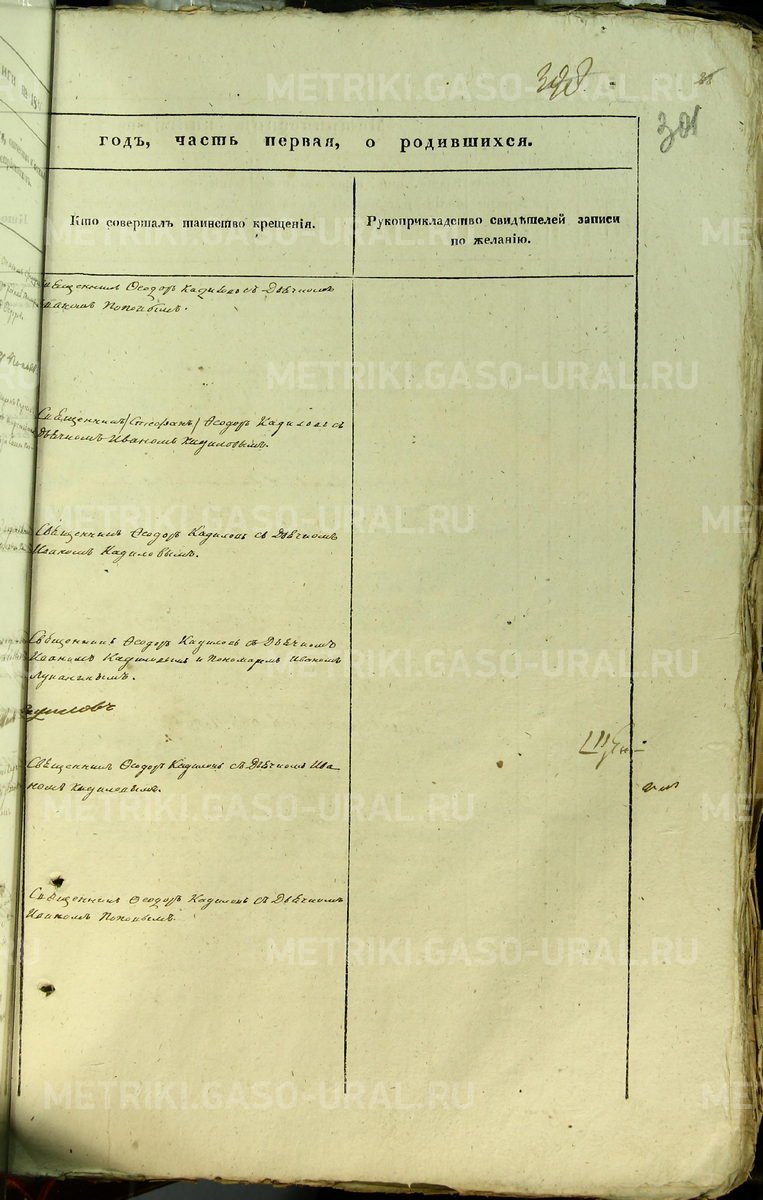 301
годъ, часть первая, о родившихся.
Кто совершалъ таинство крещенія.
Рукоприкладство свидѣтелей записи
по желанію.
Священникъ Ѳеодоръ Кадиловъ съ Дьячкомъ
Иваномъ Поповымъ.
Священникъ /Стефанъ/ Ѳеодоръ Кадиловъ съ
Дьячкомъ Иваномъ Кадиловымъ.
Священникъ Ѳеодоръ Кадиловъ съ Дьячкомъ
Иваномъ Кадиловымъ.
Священникъ Ѳеодоръ Кадиловъ съ Дьячкомъ
Иваномъ Кадиловымъ и Пономаремъ Иваномъ
Кадиловъ
Священникъ Ѳеодоръ Кадиловъ съ Дьячкомъ Ива-
номъ Кадиловымъ.
Священникъ Ѳеодоръ Кадиловъ съ Дьячкомъ
Иваномъ Поповымъ.
METRIKI.GASO-URAL.RU